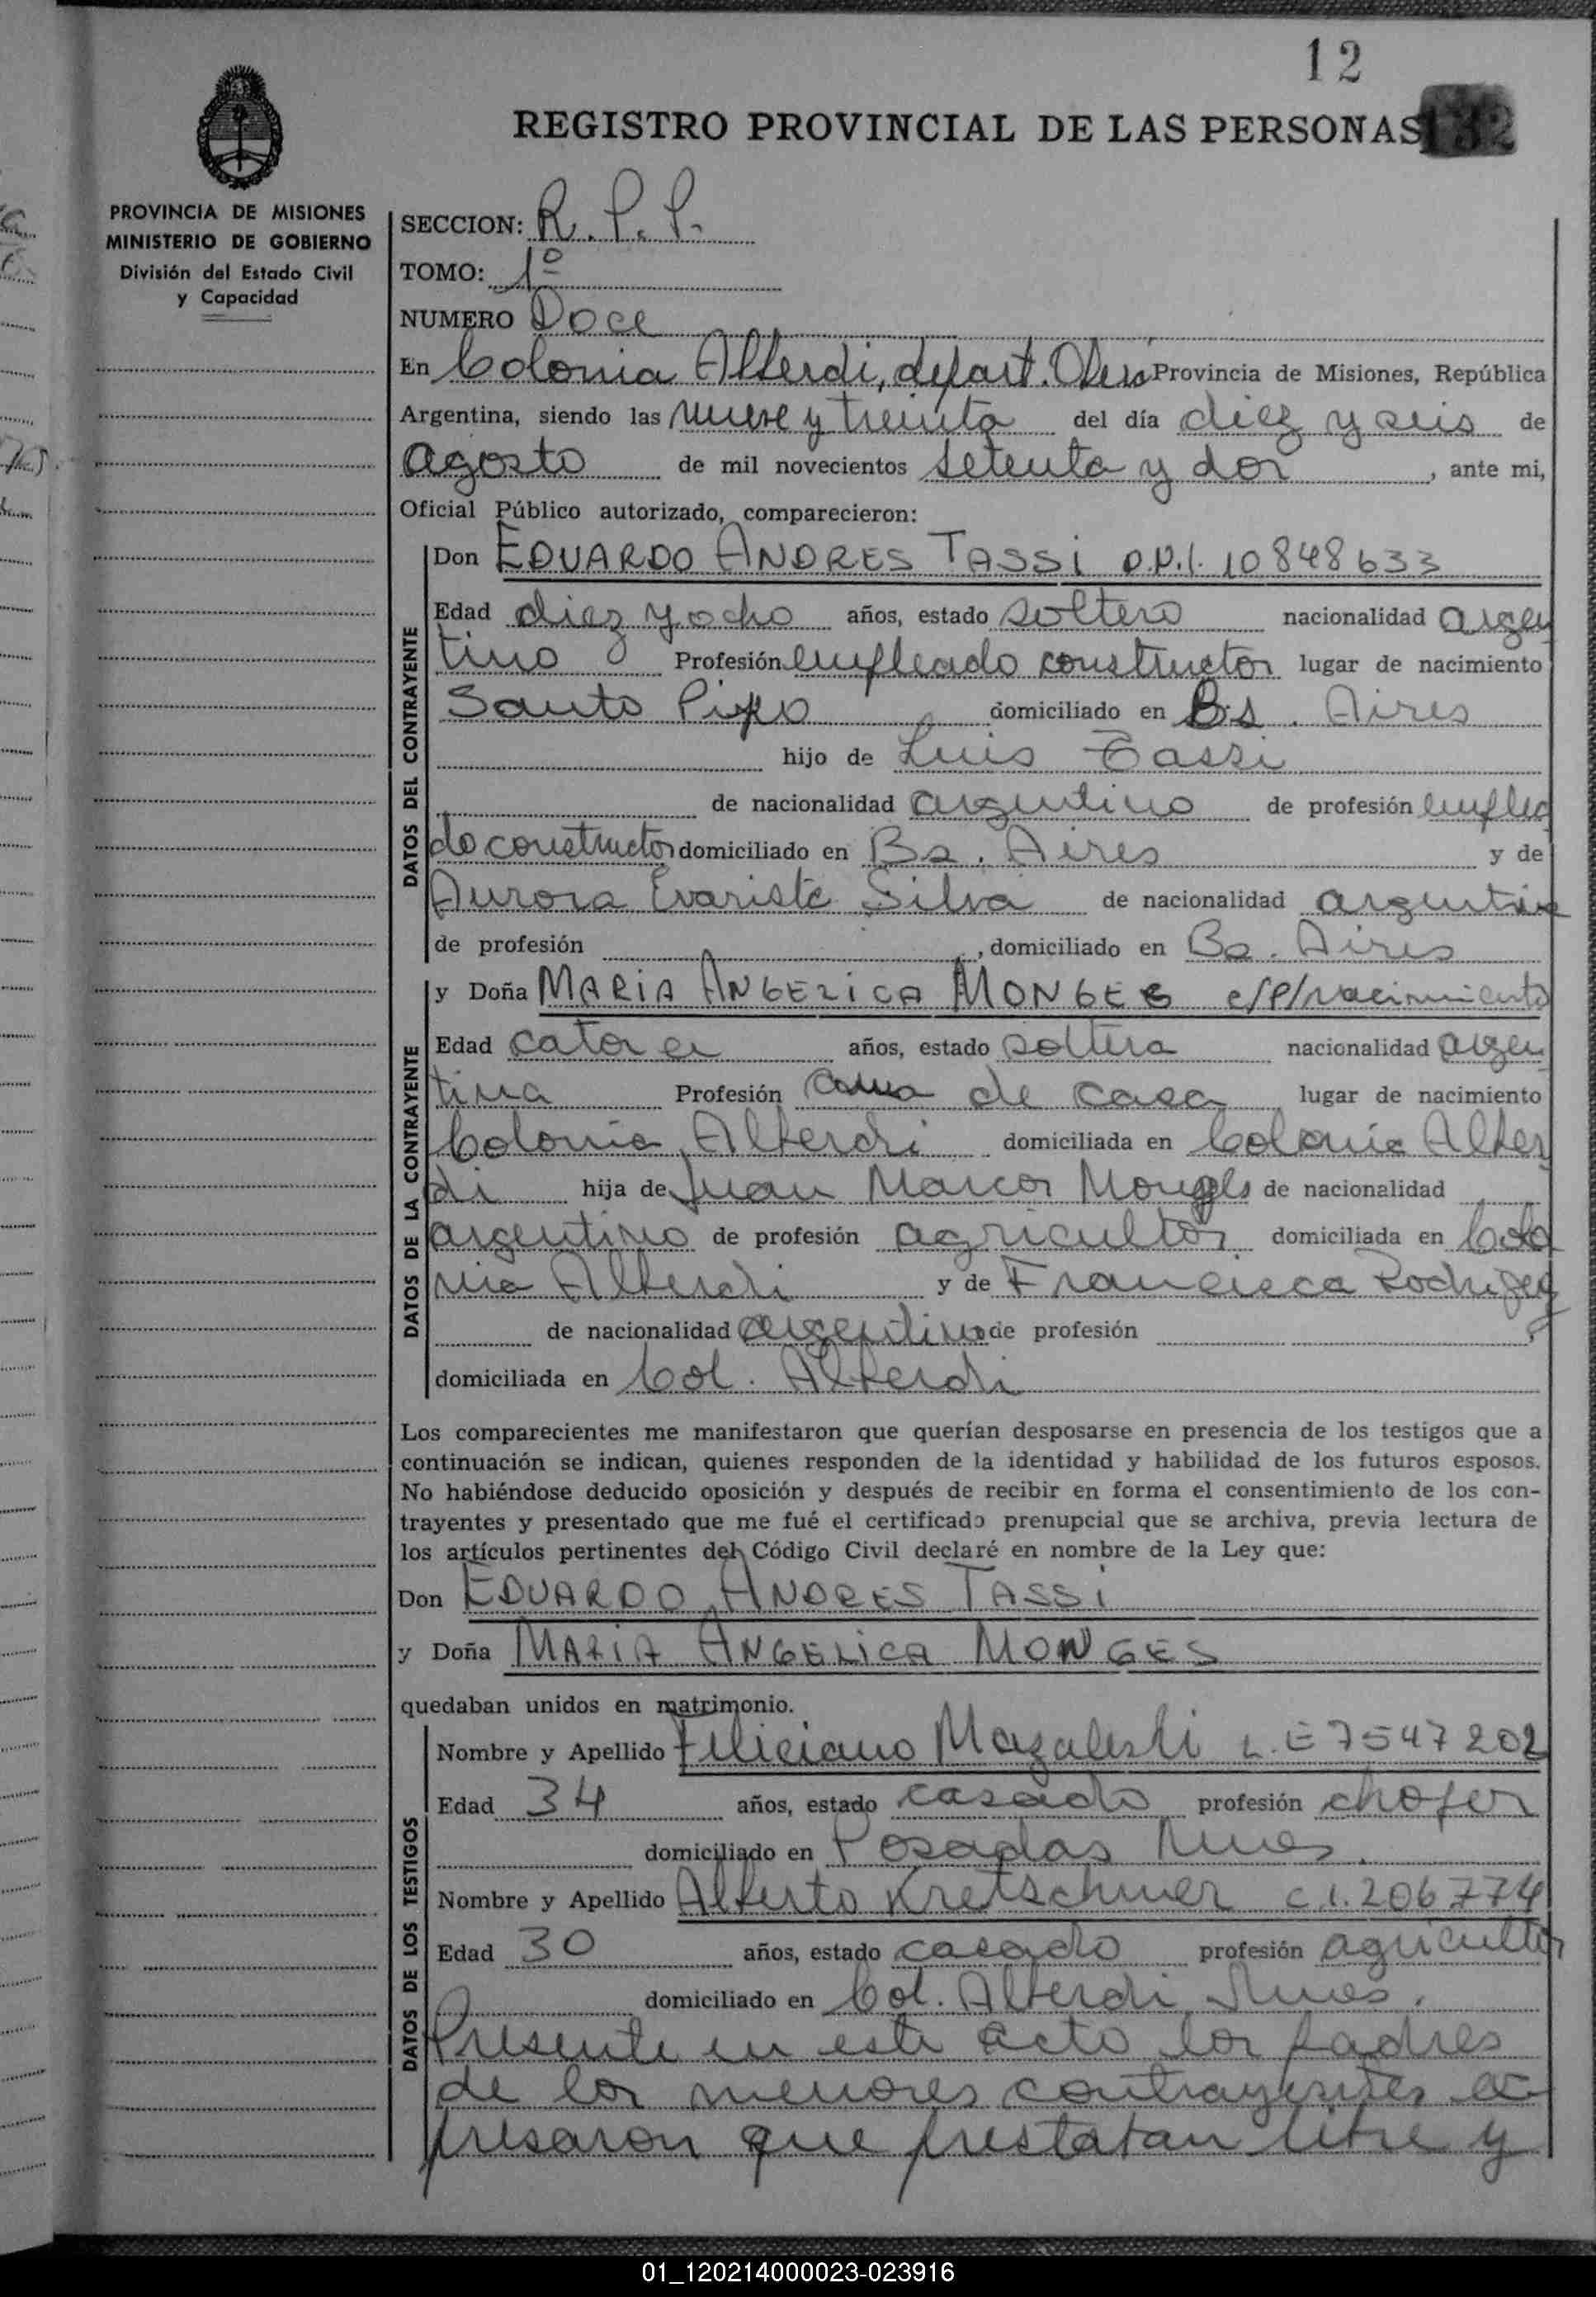 12
REGISTRO PROVINCIAL DE LAS PERSONAS 132
PROVINCIA DE MISIONES
MINISTERIO DE GOBIERNO
División del Estado Civil
y Capacidad
SECCION: R. P. P.
TOMO: 1º
NUMERO Doce
En Colonia Alberdi, depart. Oberá Provincia de Misiones, República
Argentina, siendo las nueve y treinta del día diez y seis de
agosto de mil novecientos setenta y dos, ante mi,
Oficial Público autorizado, comparecieron:
DATOS DEL CONTRAYENTE
Don EDUARDO ANDRES TASSI D.N.I. 10848633
Edad diez y ocho años, estado soltero nacionalidad argen
tino Profesión empleado constructor lugar de nacimiento
Santo Pipo domiciliado en Bs. Aires
hijo de Luis Tassi
de nacionalidad argentino de profesión emplea
do constructor domiciliado en Bs. Aires y de
Aurora Evariste Silva de nacionalidad argentina
de profesión , domiciliado en Bs. Aires
DATOS DE LA CONTRAYENTE
y Doña MARIA ANGELICA MONGES c/p/nacimiento
Edad catorce años, estado soltera nacionalidad argen
tina Profesión ama de casa lugar de nacimiento
Colonia Alberdi domiciliada en Colonia Alber
di hija de Juan Marcos Monges de nacionalidad
argentino de profesión agricultor domiciliada en Colo
nia Alberdi y de Francisca Rodriguez
de nacionalidad argentina de profesión ,
domiciliada en Col. Alberdi
Los comparecientes me manifestaron que querían desposarse en presencia de los testigos que a
continuación se indican, quienes responden de la identidad y habilidad de los futuros esposos.
No habiéndose deducido oposición y después de recibir en forma el consentimiento de los con-
trayentes y presentado que me fué el certificado prenupcial que se archiva, previa lectura de
los artículos pertinentes del Código Civil declaré en nombre de la Ley que:
Don EDUARDO ANDRES TASSI
y Doña MARIA ANGELICA MONGES
quedaban unidos en matrimonio.
DATOS DE LOS TESTIGOS
Nombre y Apellido Feliciano L.E 7547202
Edad 34 años, estado casado profesión chofer
domiciliado en Posadas Mnes.
Nombre y Apellido Alberto Kretschmer C.I. 206774
Edad 30 años, estado casado profesión agricultor
domiciliado en Col. Alberdi Mnes.
Presente en este acto los padres
de los menores contrayentes ex
presaron que prestaban libre y
01_120214000023-023916